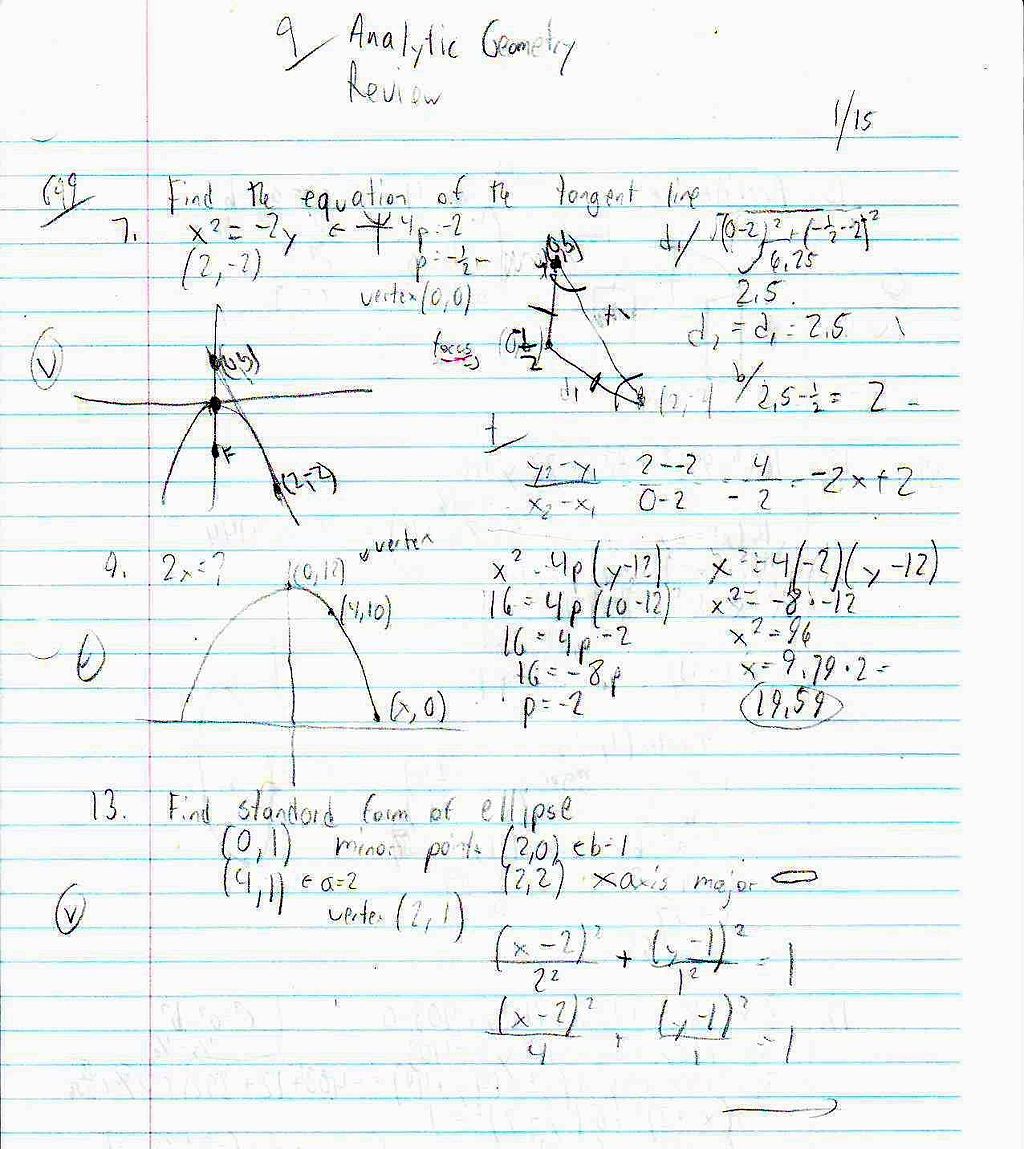 9 Analytic Geometry
Review
1/15
699 Find the equation of the tangent line
7. x² = -2y 4p = -2
(2,-2) p = -½
vertex (0,0)
(0,b)
d₁ √(0-2)² + (-½--2)²
√6.25
2.5
d₂ = d₁ = 2.5
focus (0,-½)
d₁ (2,-2) b/ 2.5-½ = 2
(0,b)
F
(2,-2)
y₂-y₁ / x₂-x₁ = 2--2 / 0-2 = 4 / -2 = -2x+2
9. 2x=? (0,12) vertex
(4,10)
(x,0)
x² = 4p(y-12)
16 = 4p(10-12)
16 = 4p·-2
16 = -8p
p = -2
x² = 4(-2)(y-12)
x² = -8·-12
x² = 96
x = 9.79·2=
19.59
13. Find standard form of ellipse
(0,1) minor points (2,0) ←b=1
(4,1) ←a=2 (2,2) x axis major
vertex (2,1)
(x-2)²/2² + (y-1)²/1² = 1
(x-2)²/4 + (y-1)²/1 = 1